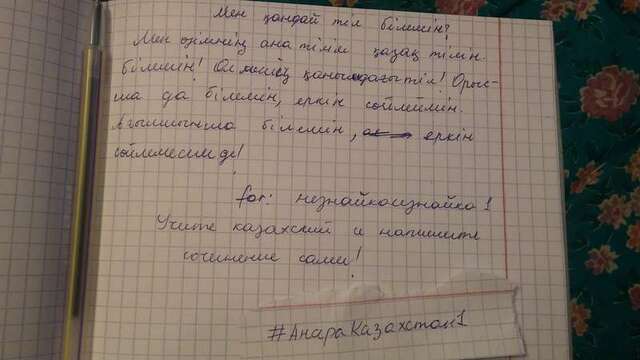 Мен қандай тіл білемін?
Мен өзімнің ана тілім қазақ тілін
білемін! Ол менің қанымдағы тіл! Орыс-
ша да білемін, еркін сөйлеймін.
Ағылшынша білемін, еркін
сөйлемесем де!
for: незнайкаизнайка1
Учите казахский и напишите
сочинение сами!
#АнараКазахстан1